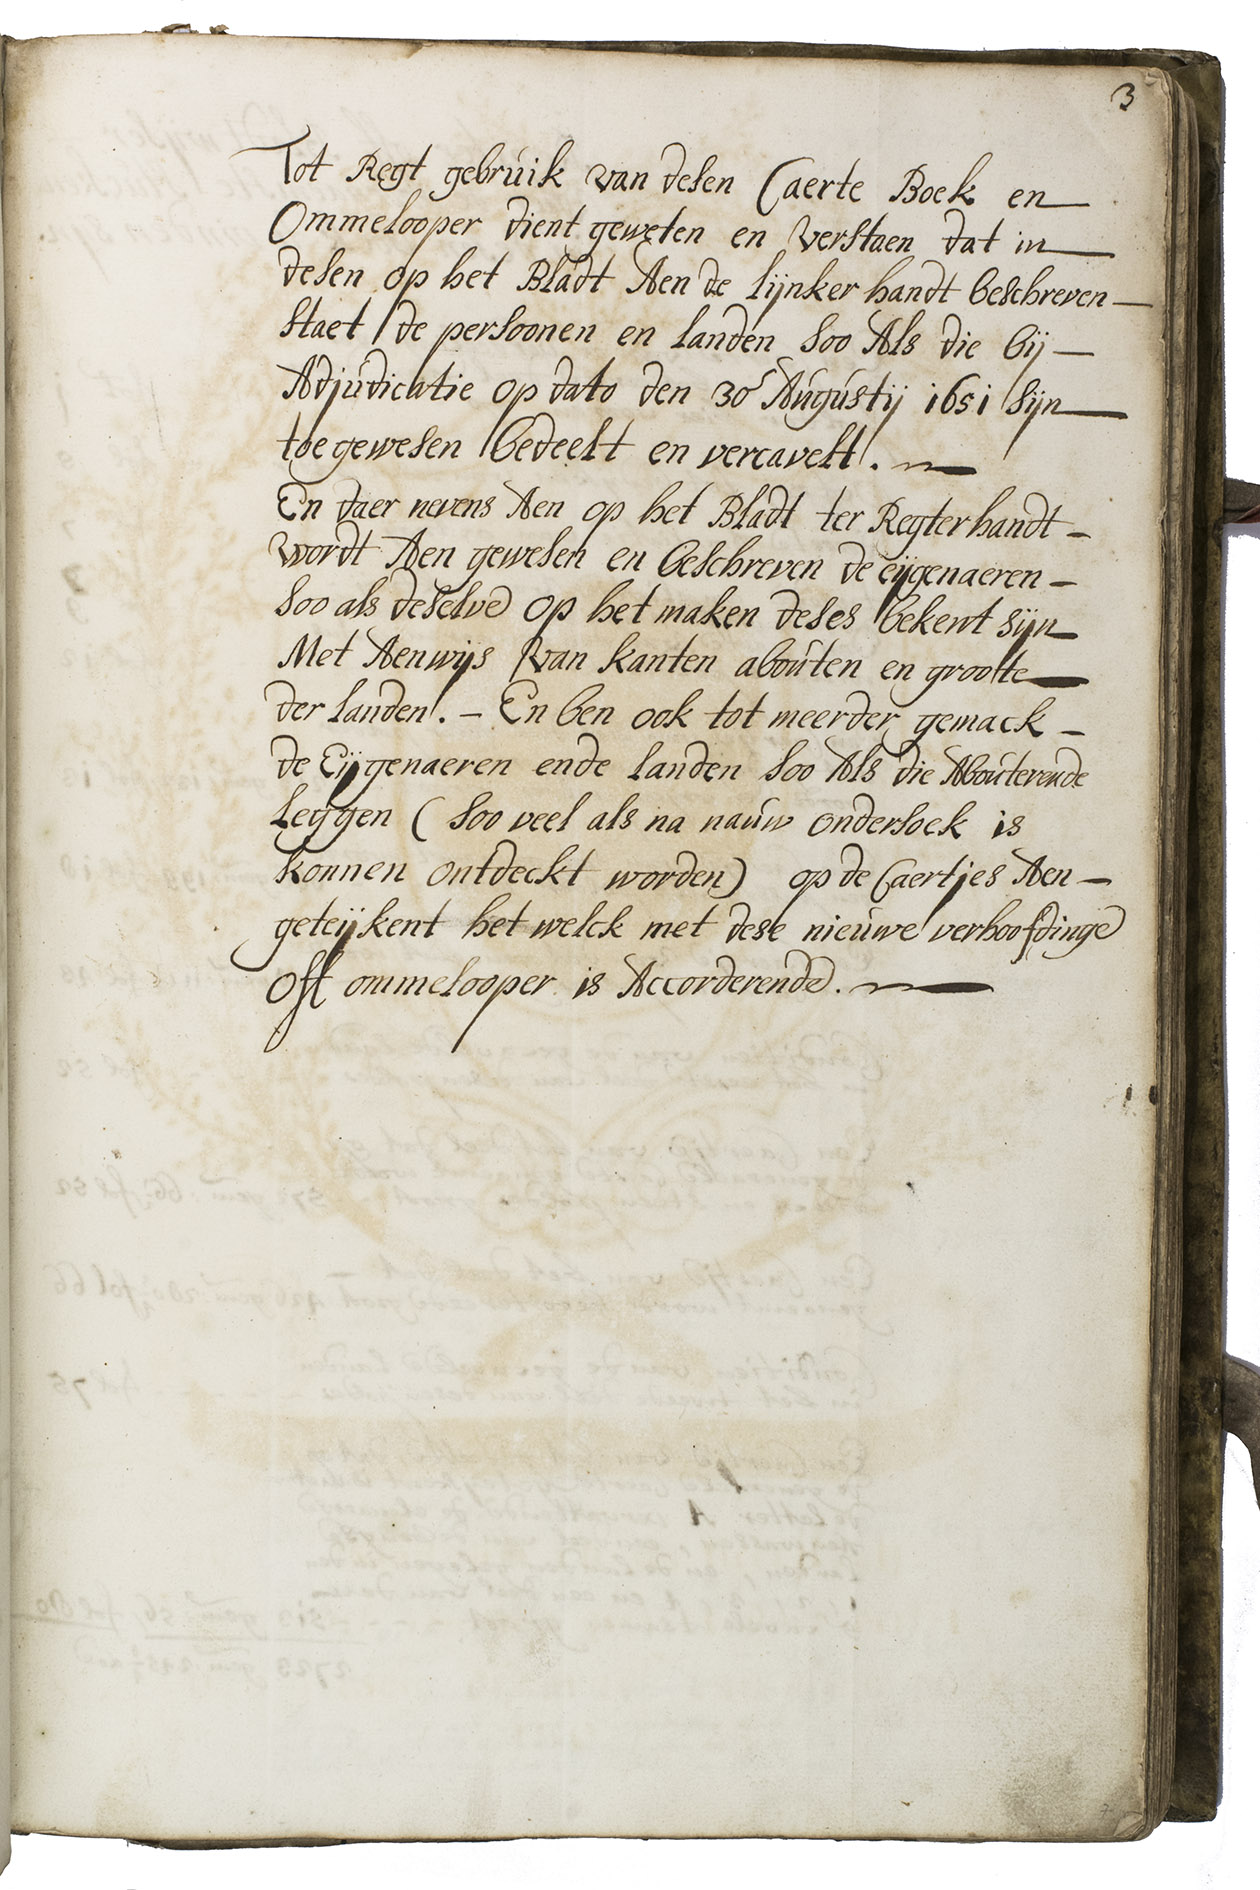 3
Tot Regt gebruik van desen Caerte Boek en
Ommelooper dient geweten en verstaen dat in
desen op het Bladt Aen de lijnker handt beschreven
staet de persoonen en landen soo Als die bij
Adjudicatie op dato den 30 Augustij 1651 sijn
toegewesen bedeelt en vercavelt.
En daer nevens Aen op het Bladt ter Regterhandt
wordt Aen gewesen en beschreven de eijgenaeren
soo als deselve op het maken deses bekent sijn
Met Aenwijs van kanten abouten en grootte
der landen. - En ben ook tot meerder gemack
de Eijgenaeren ende landen soo Als die Abouterende
leggen (soo veel als na nauw ondersoek is
konnen ontdeckt worden) op de Caertjes Aen
geteijkent het welck met dese nieuwe verhoofdinge
Oft ommelooper is Accorderende.